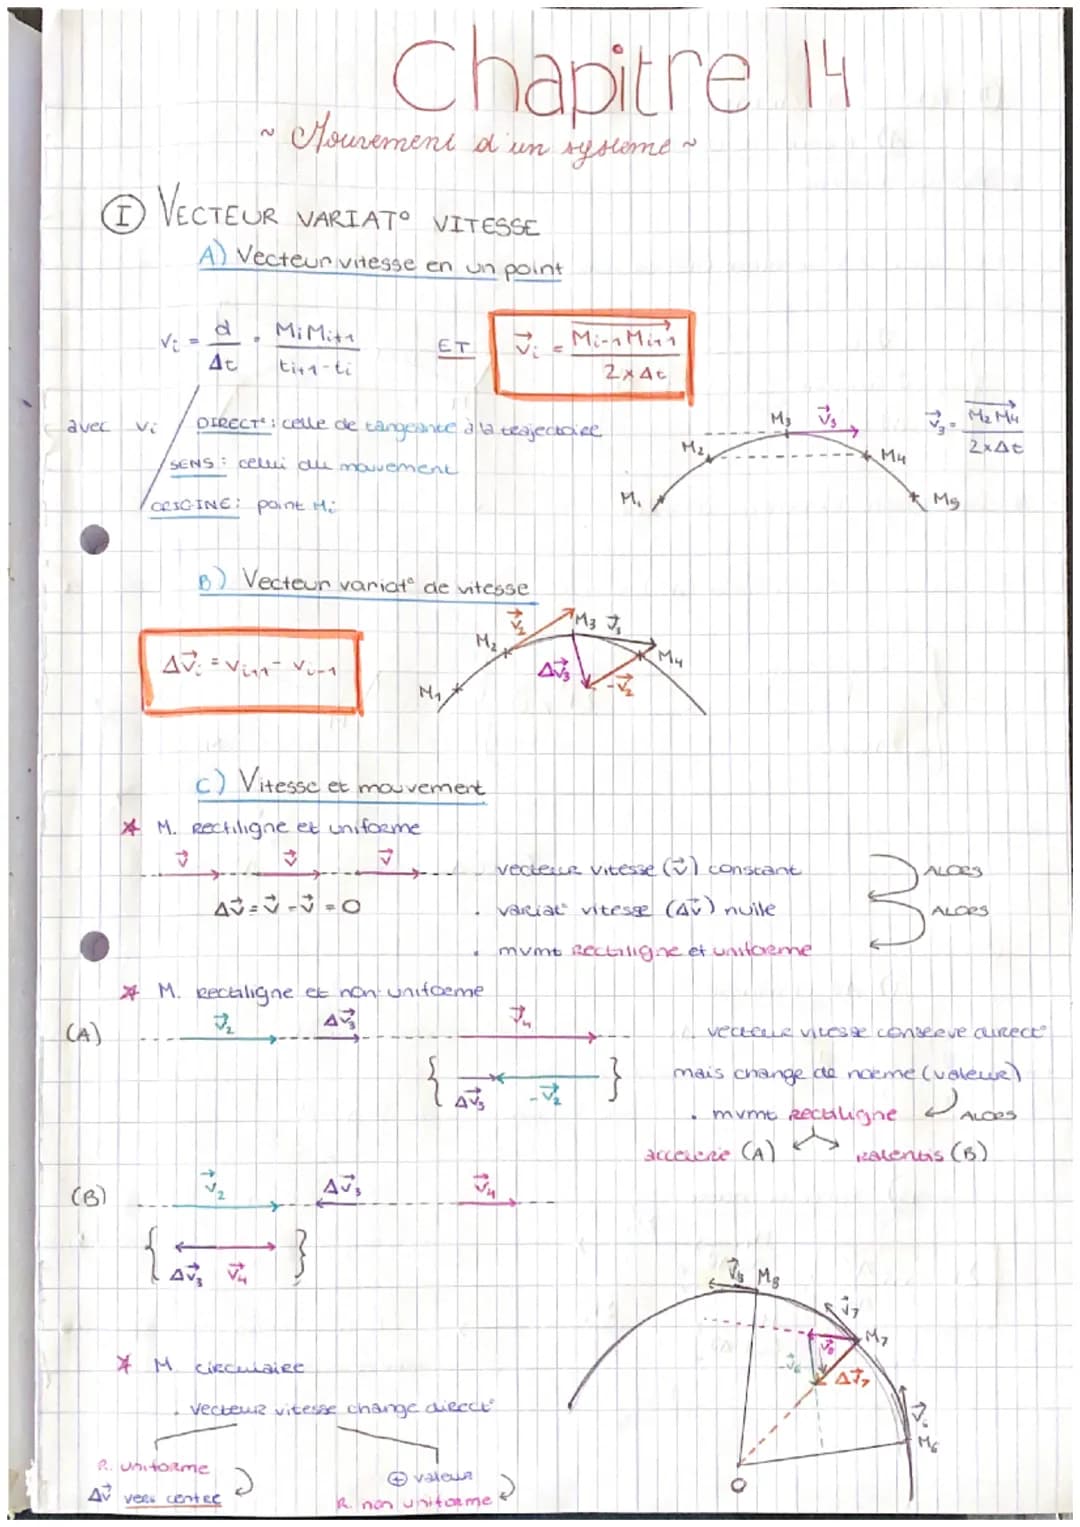 Chapitre 14
~ Mouvement d'un système ~
I VECTEUR VARIAT° VITESSE
A) Vecteur vitesse en un point
Vi = d/Δt = MiMi+1/ti+1-ti ET V⃗i = Mi-1Mi+1/2×Δt
avec Vi
DIRECT°: celle de tangeance à la trajectoire
SENS: celui du mouvement
ORIGINE: point Mi
M1 M2 M3 V⃗3 M4 M5
V⃗3 = M2M4/2×Δt
B) Vecteur variat° de vitesse
ΔV⃗i = Vi+1 - Vi-1
M1 M2 V⃗2 M3 V⃗3 M4 ΔV⃗3 -V⃗2
C) Vitesse et mouvement
* M. Rectiligne et uniforme
V⃗ V⃗ V⃗
ΔV⃗ = V⃗ - V⃗ = 0
vecteur vitesse (V⃗) constant ALORS
. variat° vitesse (ΔV⃗) nulle ALORS
. mvmt Rectiligne et uniforme
* M. Rectiligne et non-uniforme
(A) V⃗2 ΔV⃗3 V⃗4
{ ΔV⃗3 -V⃗2 }
. vecteur vitesse conserve direct°
mais change de norme (valeur)
. mvmt Rectiligne ALORS
accelerie (A) Ralentis (B)
(B) V⃗2 ΔV⃗3 V⃗4
{ ΔV⃗3 V⃗4 }
* M circulaire
. vecteur vitesse change direct°
R. uniforme
ΔV⃗ vers centre
⊕ valeur
R. non uniforme
V⃗8 M8 V⃗7 M7 V⃗8 -V⃗6 ΔV⃗7 V⃗6 M6 O